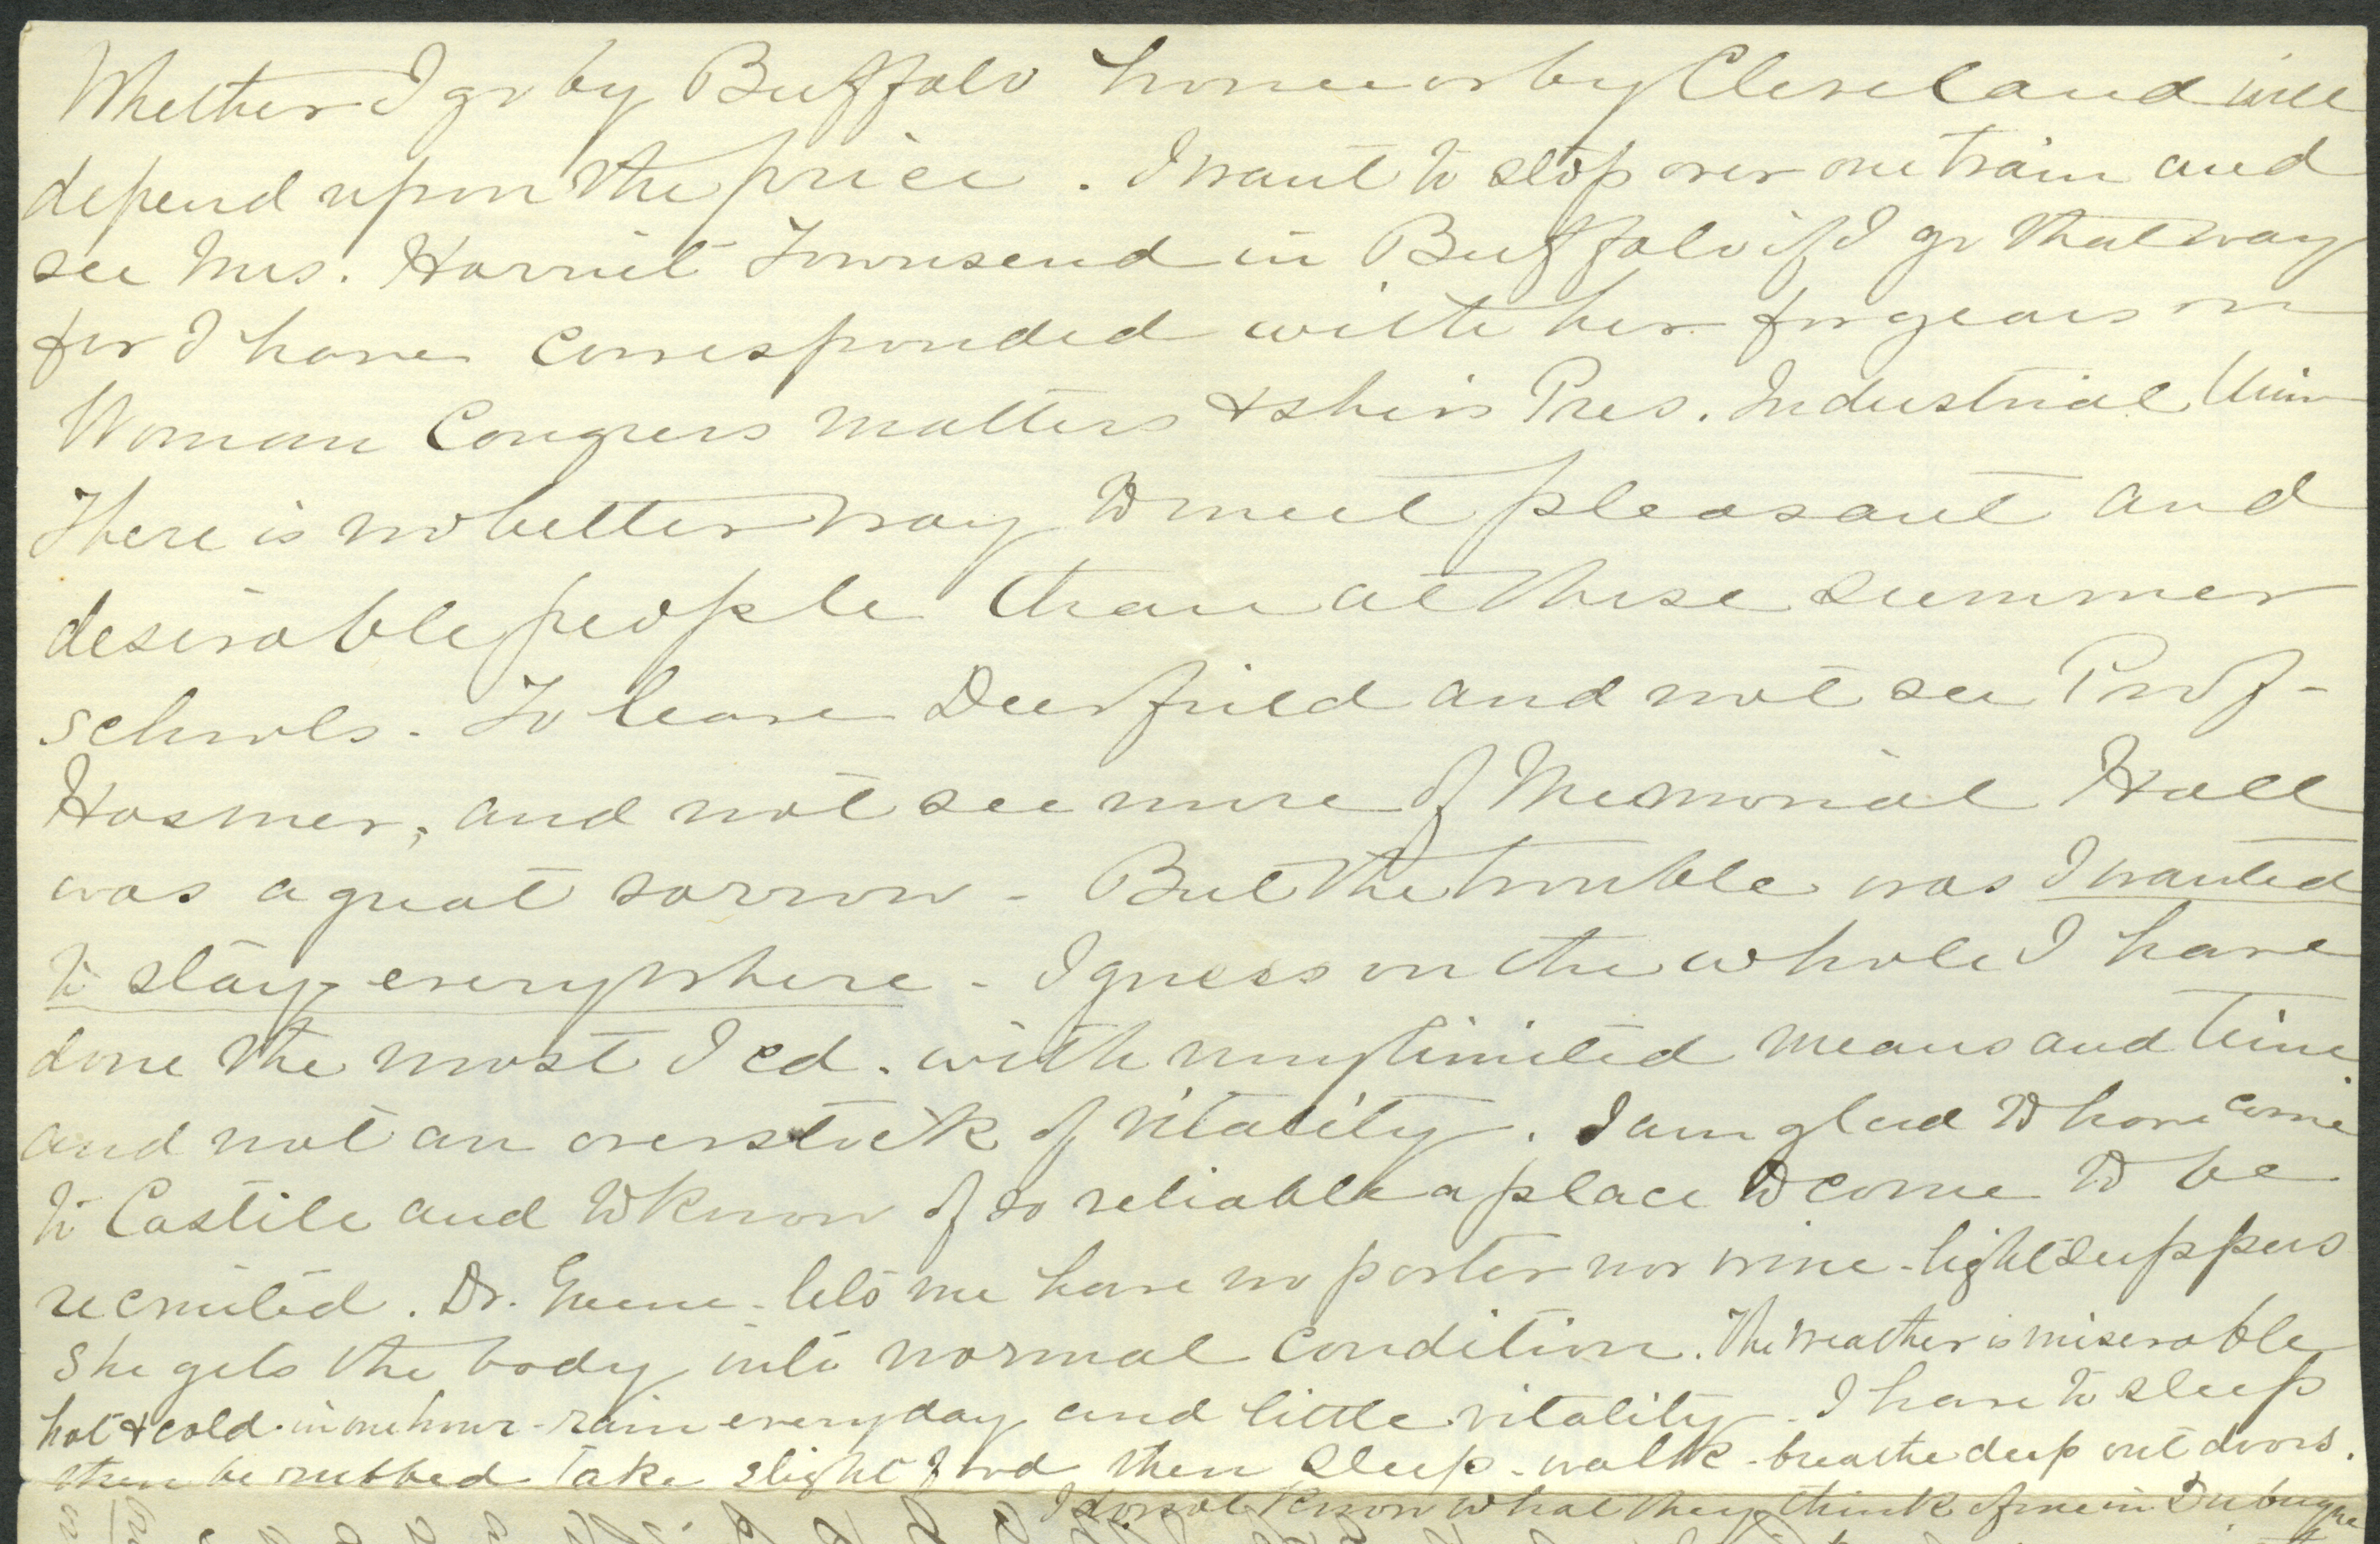 Whether I go by Buffalo home or by Cleveland will
depend upon the price. I want to stop over one train and
see Mrs. Harriet Townsend in Buffalo if I go that way
for I have corresponded with her for years on
Woman Congress matters & she is Pres. Industrial Union
There is no better way to meet pleasant and
desirable people than at these summer
schools. To leave Deerfield and not see Prof-
Hosmer, and not see more of Memorial Hall
was a great sorrow - But the trouble was I wanted
to stay everywhere - I guess on the whole I have
done the most I cd. with my limited means and time
and not an overstock of vitality. I am glad to have come
to Castile and to know of so reliable a place to come to be
recruited. Dr. Greene - lets me have no porter nor wine - light suppers
She gets the body into normal condition. The weather is miserable
hot & cold - in one hour - rain every day and little vitality. I have to sleep
then be rubbed take slight food then sleep - walk - breathe deep out doors.
I do not know what they think of me in Dubuque